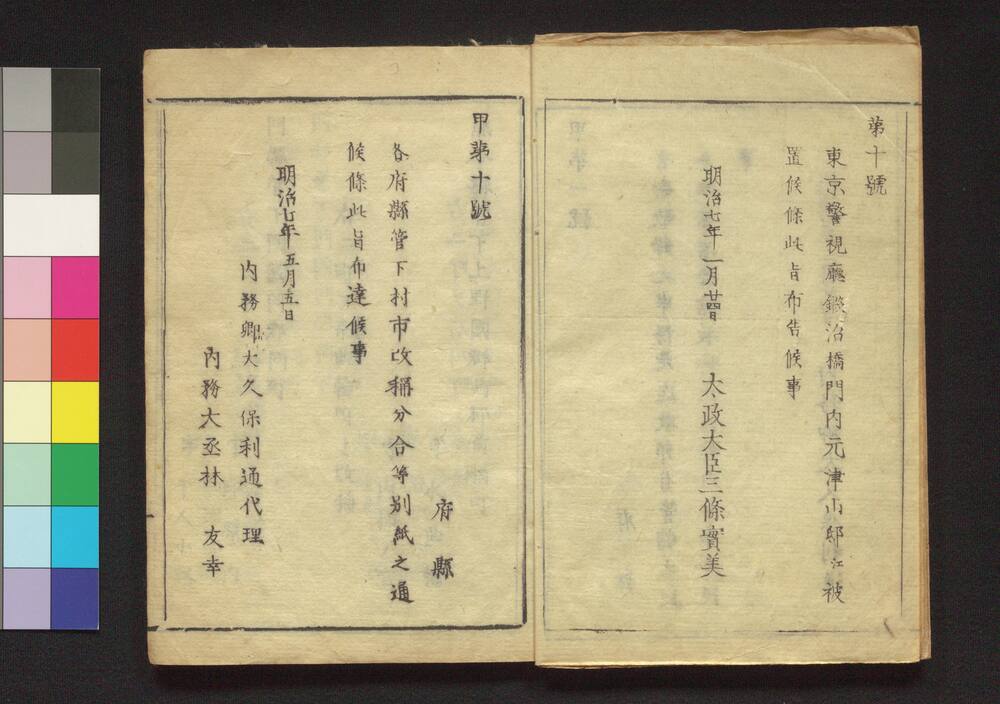 第十號
東京警視廳鍛冶橋門内元津山邸江被
置候條此旨布告候事
明治七年一月廿四日
太政大臣三條實美
甲第十號
府縣
各府縣管下村市改稱分合等別紙之通
候條此旨布達候事
明治七年五月五日
内務卿大久保利通代理
内務大丞林友幸